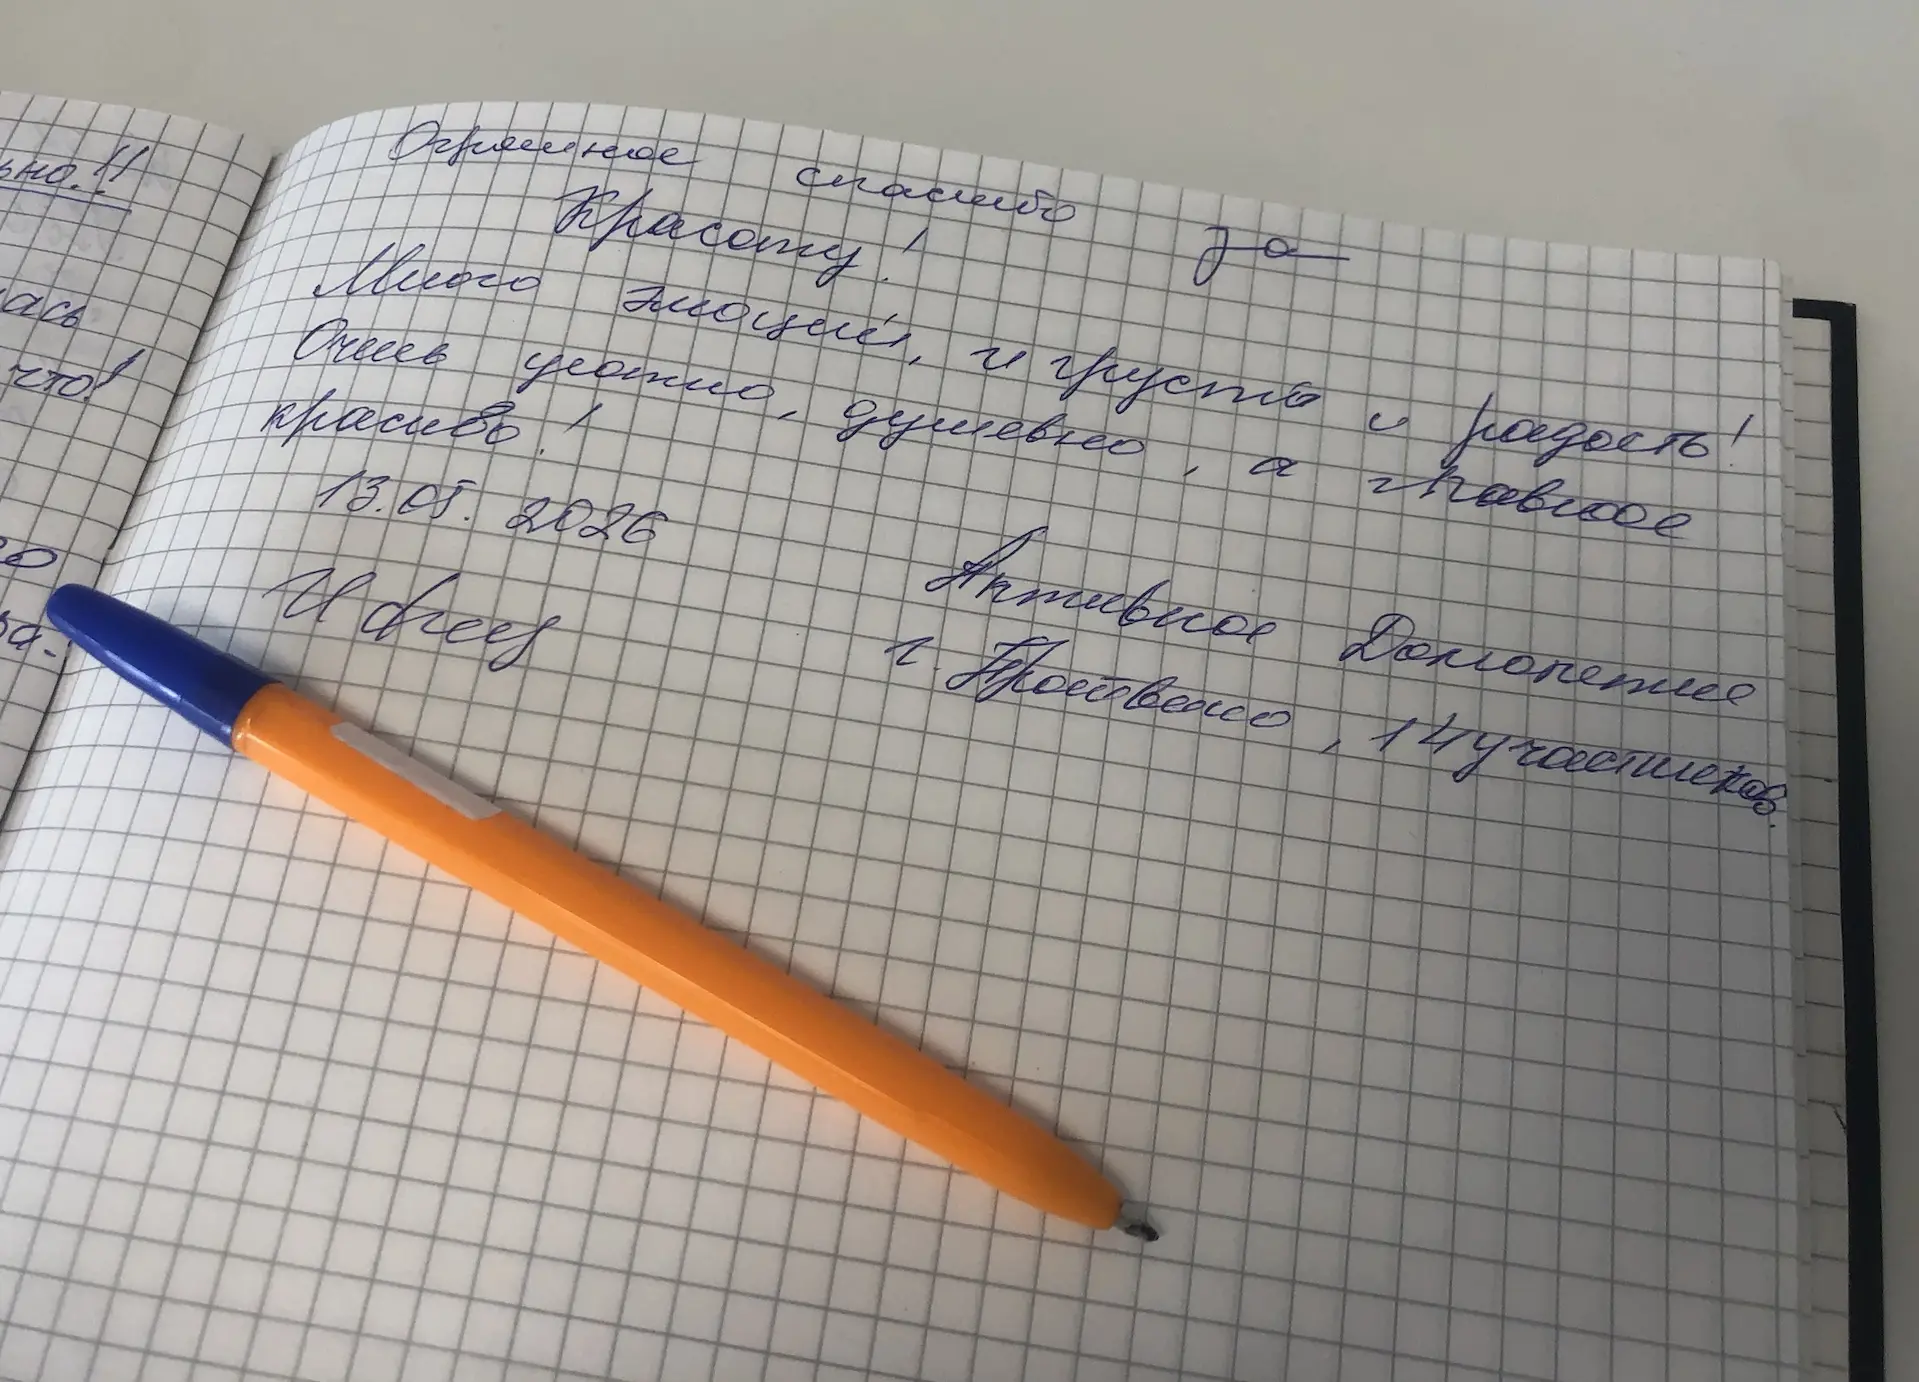 ьно!!
ась
что!
го
ра.
Огромное спасибо за
Красоту!
Много эмоций, и грусть и радость!
Очень уютно, душевно, а главное
красиво!
13.05.2026
Активное Долголетие
г. Протвино, 14 участников.